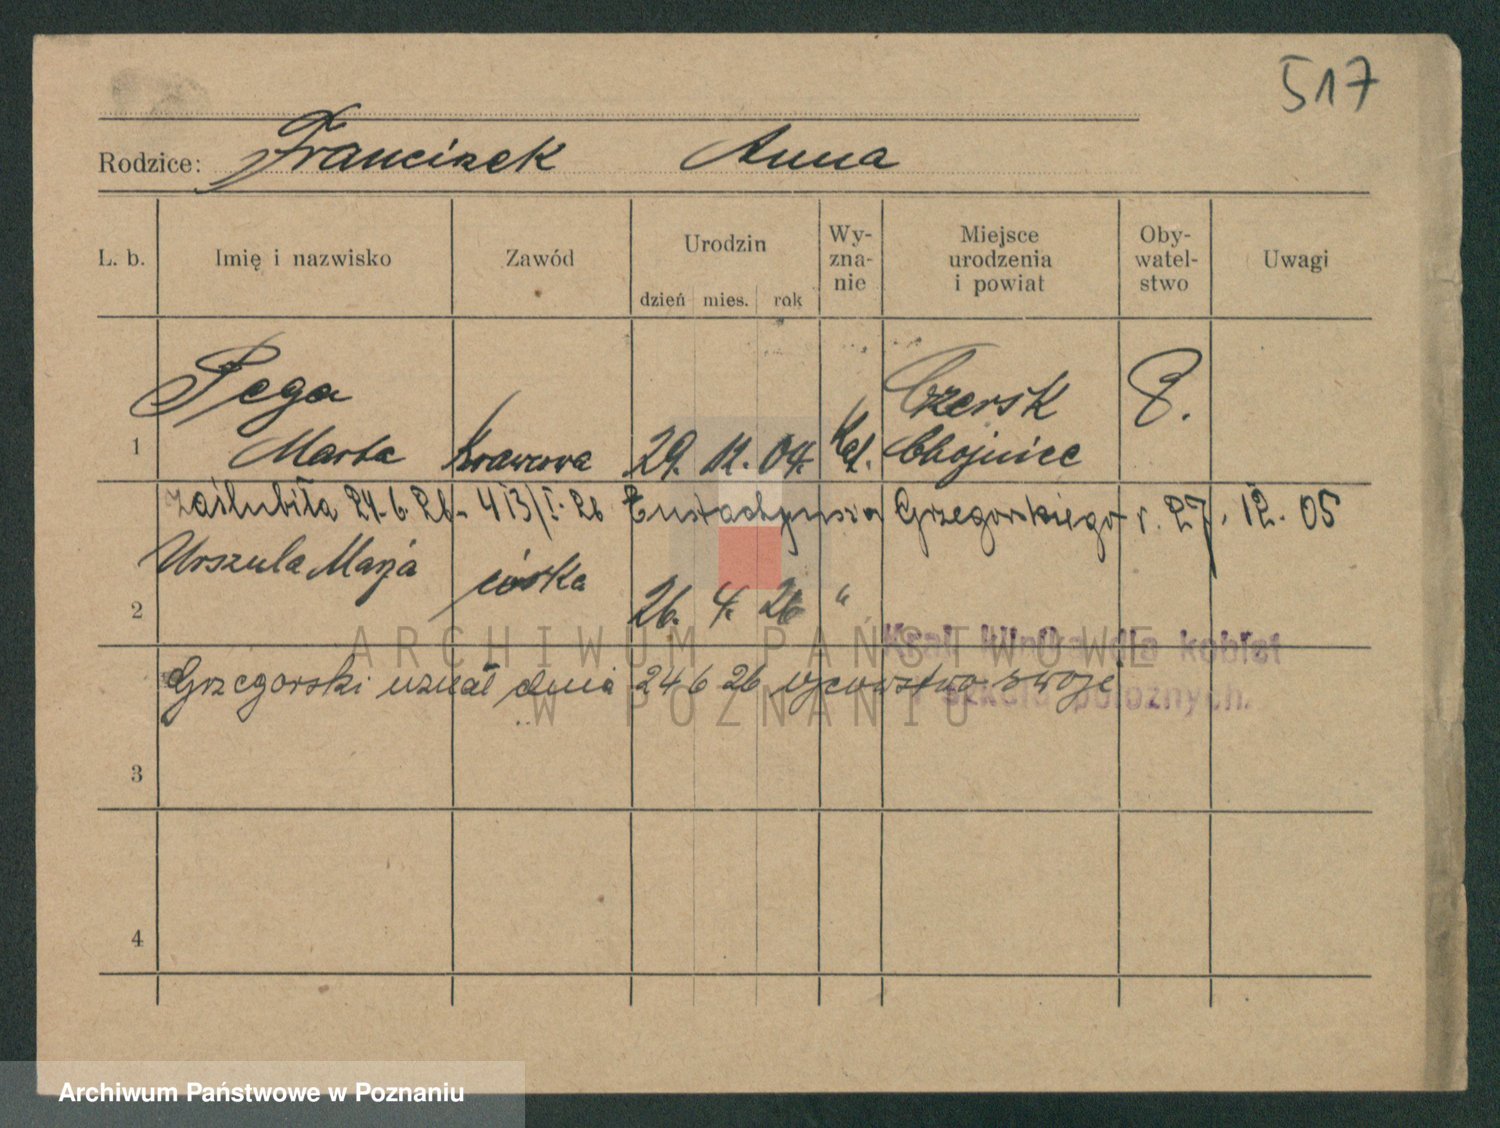 517
Rodzice: Franciszek Anna
L. b. Imię i nazwisko Zawód Urodzin dzień mies. rok Wy-zna-nie Miejsce urodzenia i powiat Oby-watel-stwo Uwagi
Pega Czersk P.
1 Marta krawcowa 29. 11. 04. Kat. Chojnice
zaślubiła 24. 6. 26 - 413/I. 26 Eustachjusza Grzegorskiego r. 27. 12. 05
Urszula Marja córka
2 26. 4. 26 "
Kraj. klinika dla kobiet
Grzegorski uznał dnia 24 6 26 ojcowstwo swoje
i szkoła położnych.
3
4
ARCHIWUM PAŃSTWOWE
W POZNANIU
Archiwum Państwowe w Poznaniu